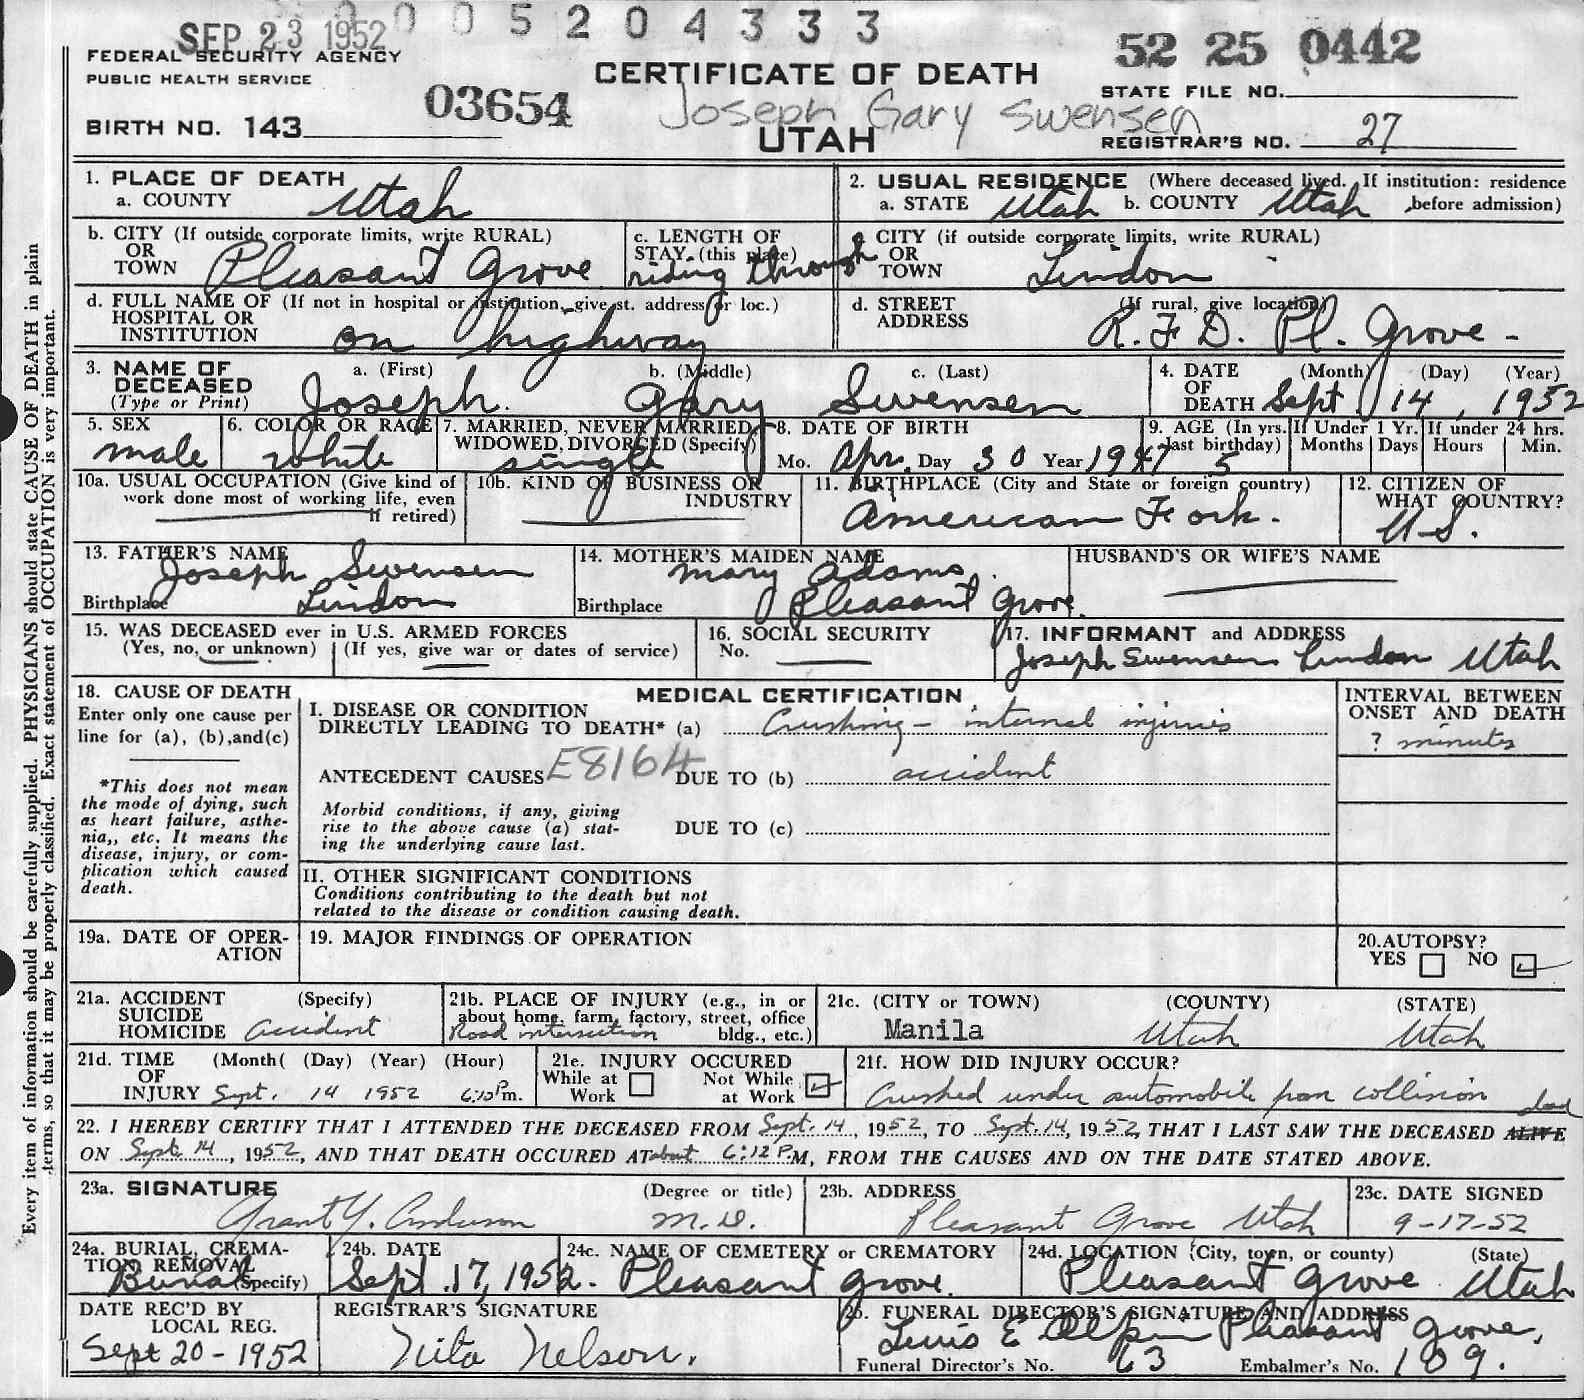 0 0 0 5 2 0 4 3 3 3
SEP 23 1952
52 25 0442
FEDERAL SECURITY AGENCY
PUBLIC HEALTH SERVICE
CERTIFICATE OF DEATH
STATE FILE NO.
03654
Joseph Gary Swensen
BIRTH NO. 143
UTAH
REGISTRAR'S NO. 27
1. PLACE OF DEATH
a. COUNTY Utah
2. USUAL RESIDENCE (Where deceased lived. If institution: residence
a. STATE Utah b. COUNTY Utah before admission)
b. CITY (If outside corporate limits, write RURAL)
OR
TOWN Pleasant Grove
c. LENGTH OF
STAY (this place)
riding through
c. CITY (if outside corporate limits, write RURAL)
OR
TOWN Lindon
d. FULL NAME OF (If not in hospital or institution, give st. address or loc.)
HOSPITAL OR
INSTITUTION on highway
d. STREET (If rural, give location)
ADDRESS R.F.D. Pl. Grove -
3. NAME OF a. (First) b. (Middle) c. (Last)
DECEASED
(Type or Print) Joseph Gary Swensen
4. DATE (Month) (Day) (Year)
OF
DEATH Sept 14, 1952
5. SEX
male
6. COLOR OR RACE
white
7. MARRIED, NEVER MARRIED,
WIDOWED, DIVORCED (Specify)
single
8. DATE OF BIRTH
Mo. Apr. Day 30 Year 1947
9. AGE (In yrs. last birthday) 5
If Under 1 Yr.
Months Days
If under 24 hrs.
Hours Min.
10a. USUAL OCCUPATION (Give kind of
work done most of working life, even
if retired)
10b. KIND OF BUSINESS OR
INDUSTRY
11. BIRTHPLACE (City and State or foreign country)
American Fork.
12. CITIZEN OF
WHAT COUNTRY?
U.S.
13. FATHER'S NAME
Joseph Swensen
Birthplace Lindon
14. MOTHER'S MAIDEN NAME
Mary Adams
Birthplace Pleasant Grove.
HUSBAND'S OR WIFE'S NAME
15. WAS DECEASED ever in U.S. ARMED FORCES
(Yes, no, or unknown) (If yes, give war or dates of service)
16. SOCIAL SECURITY
No.
17. INFORMANT and ADDRESS
Joseph Swensen Lindon Utah
18. CAUSE OF DEATH
Enter only one cause per
line for (a), (b), and (c)
*This does not mean
the mode of dying, such
as heart failure, asthe-
nia,, etc. It means the
disease, injury, or com-
plication which caused
death.
MEDICAL CERTIFICATION
I. DISEASE OR CONDITION
DIRECTLY LEADING TO DEATH* (a) Crushing - internal injuries
ANTECEDENT CAUSES E8164 DUE TO (b) accident
Morbid conditions, if any, giving
rise to the above cause (a) stat-
ing the underlying cause last.
DUE TO (c)
II. OTHER SIGNIFICANT CONDITIONS
Conditions contributing to the death but not
related to the disease or condition causing death.
INTERVAL BETWEEN
ONSET AND DEATH
? minutes
19a. DATE OF OPER-
ATION
19. MAJOR FINDINGS OF OPERATION
20. AUTOPSY?
YES NO
21a. ACCIDENT (Specify)
SUICIDE
HOMICIDE accident
21b. PLACE OF INJURY (e.g., in or
about home, farm, factory, street, office
bldg., etc.)
Road intersection
21c. (CITY or TOWN) (COUNTY) (STATE)
Manila Utah Utah
21d. TIME (Month( (Day) (Year) (Hour)
OF
INJURY Sept. 14 1952 6:10 P.m.
21e. INJURY OCCURED
While at Work Not While at Work
21f. HOW DID INJURY OCCUR?
Crushed under automobile from collision
22. I HEREBY CERTIFY THAT I ATTENDED THE DECEASED FROM Sept. 14, 1952, TO Sept. 14, 1952, THAT I LAST SAW THE DECEASED ALIVE dead
ON Sept. 14, 1952, AND THAT DEATH OCCURED AT about 6:12 P.M, FROM THE CAUSES AND ON THE DATE STATED ABOVE.
23a. SIGNATURE (Degree or title)
Grant Y. Anderson M.D.
23b. ADDRESS
Pleasant Grove Utah
23c. DATE SIGNED
9-17-52
24a. BURIAL, CREMA-
TION, REMOVAL
(Specify) Burial
24b. DATE
Sept. 17, 1952.
24c. NAME OF CEMETERY or CREMATORY
Pleasant Grove.
24d. LOCATION (City, town, or county) (State)
Pleasant Grove Utah
DATE REC'D BY
LOCAL REG.
Sept 20-1952
REGISTRAR'S SIGNATURE
Nita Nelson.
25. FUNERAL DIRECTOR'S SIGNATURE AND ADDRESS
E Pleasant Grove.
Funeral Director's No. 63 Embalmer's No. 109.
Every item of information should be carefully supplied. PHYSICIANS should state CAUSE OF DEATH in plain
terms, so that it may be properly classified. Exact statement of OCCUPATION is very important.